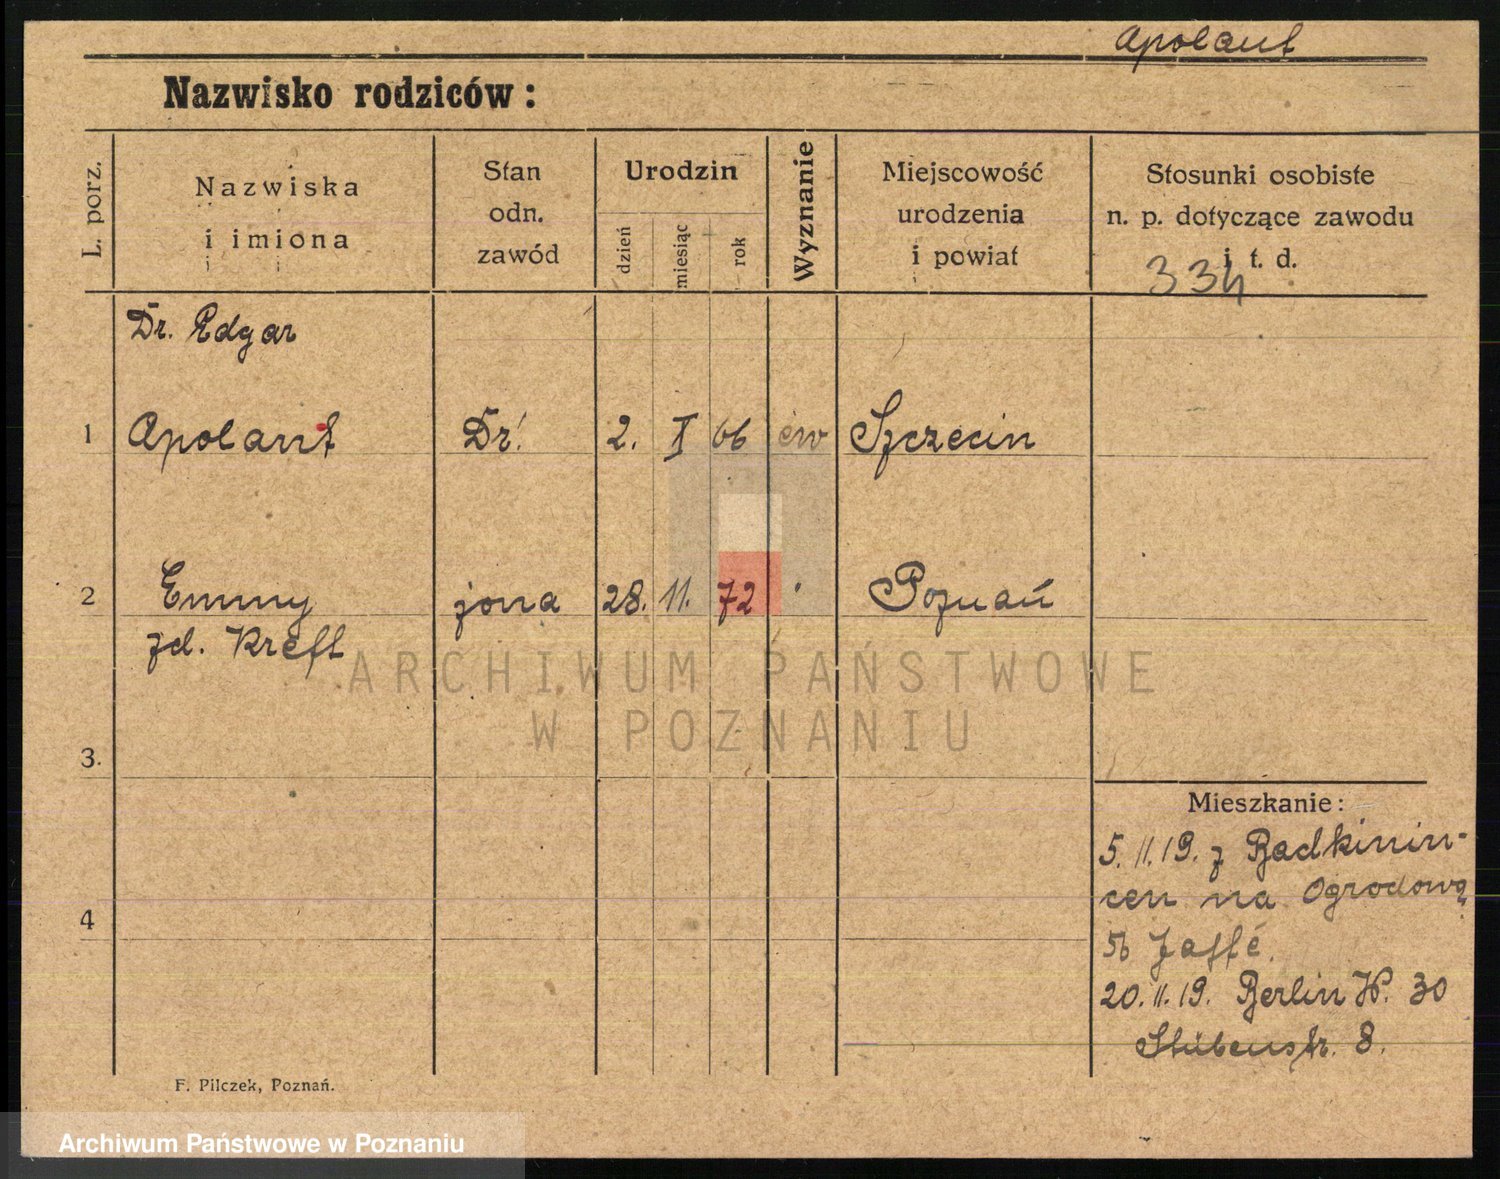 Apolant
Nazwisko rodziców:
L. porz.
Nazwiska
i imiona
Stan
odn.
zawód
Urodzin
dzień
miesiąc
rok
Wyznanie
Miejscowość
urodzenia
i powiat
Stosunki osobiste
n. p. dotyczące zawodu
i t. d.
334
Dr. Edgar
1 Apolant Dr. 2. X 66 ew Szczecin
2 Emmy żona 28. 11. 72 Poznań
zd. Kreft
ARCHIWUM PAŃSTWOWE
W POZNANIU
3.
4
Mieszkanie:
5. 11. 19. z
cen na Ogrodową
Jaffé.
20. 11. 19. Berlin W. 30
Stübenstr. 8.
F. Pilczek, Poznań.
Archiwum Państwowe w Poznaniu